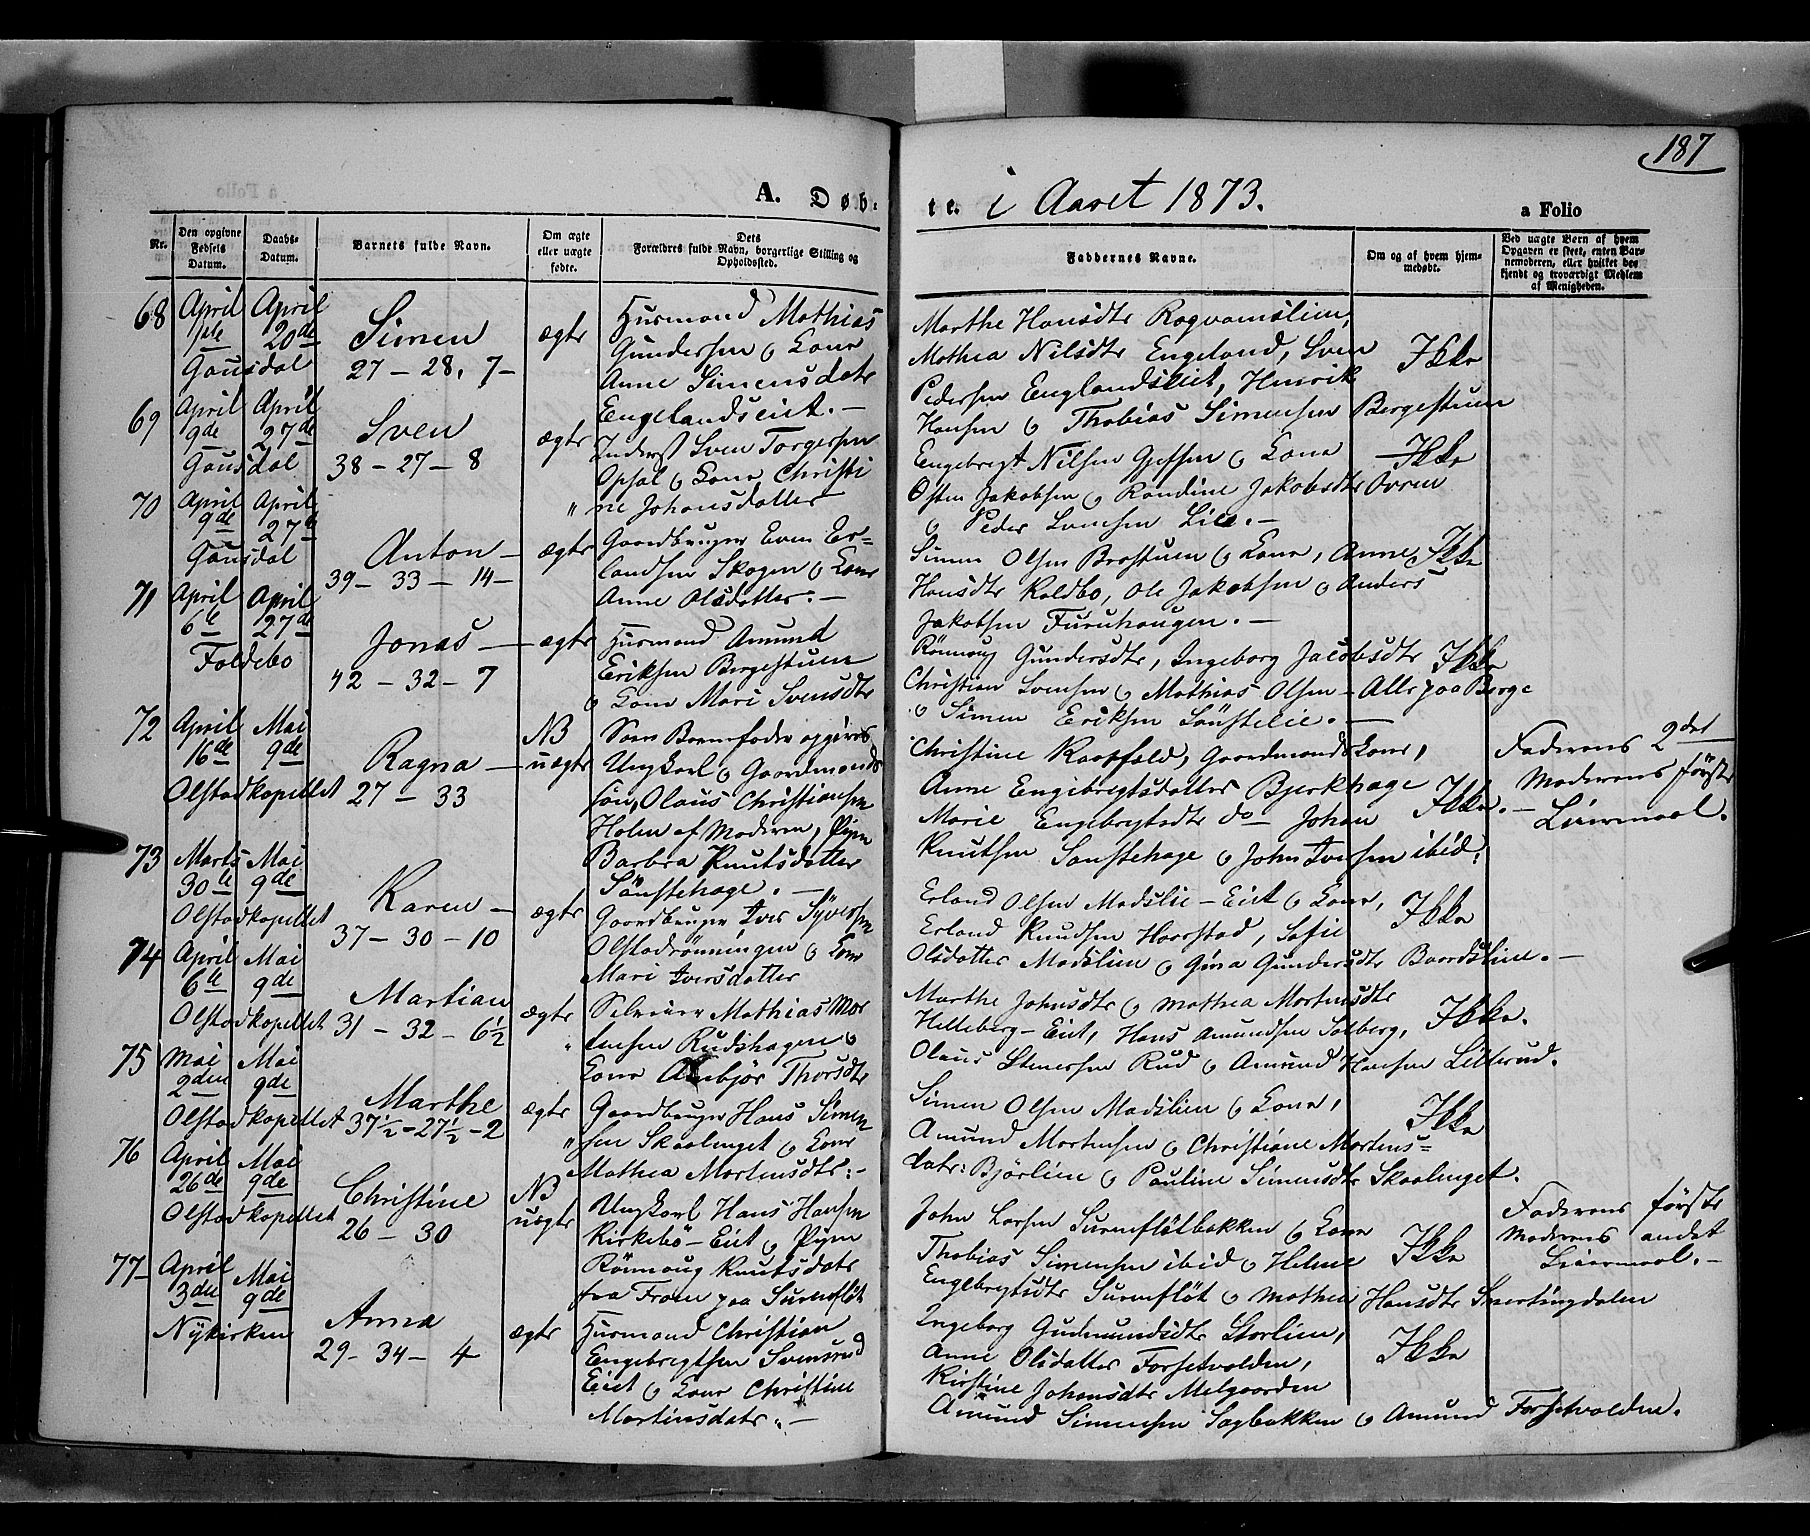 187
A. Døb-
te. i Aaret 1873.
a Folio
Nr.
Den opgivne Fødsels Datum.
Daabs-Datum.
Barnets fulde Navn.
Om ægte eller uægte fødte.
Dets Forældres fulde Navn, borgerlige Stilling og Opholdssted.
Faddernes Navne.
Om og af hvem hjemmedøbt.
Ved uægte Børn af hvem Opgaven er skeet, enten Barnemoderen, eller hvilket bekjendt og troværdigt Medlem af Menigheden.
68
April 1ste
April 20de
Gausdal
Simen
27 - 28. 7 -
ægte
Husmand Mathias
Gundersen o Kone
Anne Simensdatr
Engelandseiet. -
Marthe Hansdtr Rogvamslien,
Mathea Nilsdtr Engeland, Sven
Pedersen Englandseiet, Henrik
Hansen o Thobias Simensen Bergestuen
Ikke
69
April 9de
April 27de
Gausdal
Sven
38 - 27 - 8
ægte
Inderst Sven Torgersen
Opsal o Kone Christi
" ne Johansdatter
Engebregt Nilsen Gjefsen o Kone
Osten Jakobsen o Randine Jakobsdtr Ovren
o Peder Svensen Lie. -
Ikke
70
April 9de
April 27de
Gausdal
Anton -
39 - 33 - 14 -
ægte
Gaardbruger Even Er=
landsen Skogen o Kone
Anne Olsdatter. -
Simen Olsen Brostuen o Kone, Anne
Hansdtr Koldbo, Ole Jakobsen o Anders
Jakobsen Furuhaugen. -
Ikke
71
April 6te
April 27de
Foldebo
Jonas -
42 - 32 - 7
ægte
Husmand Amund
Eriksen Bergestuen
o Kone Mari Svensdtr
Rönnoug Gundersdtr, Ingeborg Jacobsdtr
Christian Svensen o Mathias Olsen - Alle paa Berge
o Simen Eriksen Sönstelie. -
Ikke
72
April 16de
Mai 9de
Olstadkapellet
Ragna -
27 - 33
NB
uægte
Som Barnefader opgives
Ungkarl o Gaardmands
søn, Olaus Christiansen
Holen af Moderen, Pigen
Barbra Knutsdatter
Sönstehage. -
Christine Kaatfald, Gaardmandskone,
Anne Engebregtsdatter Bjerkhage
Marie Engebregtsdtr do Johan
Knutsen Sønstehage o John Iversen ibid.
Ikke. -
Faderens 2det
Moderens første
Leiermaal.
73
Marts 30te
Mai 9de
Olstadkapellet
Karen -
37 - 30 - 10
ægte
Gaardbruger Iver Syversen
Olstadrönningen o Kone
Mari Iversdatter
Erland Olsen Madslie - Eiet o Kone,
Erland Knudsen Haarstad, Sofie
Olsdatter Madslien o Gina Gundersdtr Baardslien. -
Ikke
74
April 6te
Mai 9de
Olstadkapellet
Martian
31 - 32 - 6½
ægte
Selveier Mathias Mor
" tensen Rudshagen o
Kone Anbjør Thorsdtr
Marthe Johnsdtr o Mathea Mortensdtr
Helleberg - Eiet, Hans Amundsen Solberg,
Olaus Stenersen Rud o Amund Hansen Lillerud.
Ikke.
75
Mai 2den
Mai 9de
Olstadkapellet
Marthe
37½ - 27½ - 2
ægte
Gaardbruger Hans Simen
" sen Skaalenget o Kone
Mathea Mortensdtr. -
Simen Olsen Madslien o Kone,
Amund Mortensen o Christiane Mortens=
datr: Bjørlien o Pauline Simensdtr Skaalenget.
Ikke
76
April 26de
Mai 9de
Olstadkapellet
Christine
26 - 30
NB
uægte
Ungkarl Hans Hansen
Kirkebö - Eiet o Pigen
Rönnoug Knutsdatr
fra Fron paa Surenfløt
John Larsen Surenflötbakken o Kone
Thobias Simensen ibid o Helene
Engebregtsdtr Surenflöt o Mathea Hansdtr Svartingdalen
Ikke
Faderens første
Moderens andet
Leiermaal. -
77 -
April 3die
Mai 9de
Nykirken
Anna
29 - 34 - 4
ægte
Husmand Christian
Engebregtsen Svensrud
Eiet o Kone Christine
Martinsdatr. -
Ingeborg Gudmundsdtr Storlien,
Anne Olsdatter Forsetvolden,
Kirstine Johansdtr Melgaarden
Amund Simensen Sagbakken o Amund Forsetvolden.
Ikke